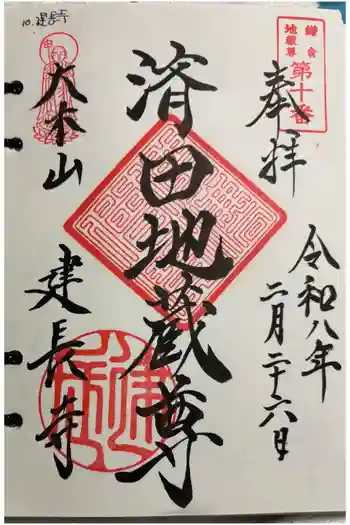 10.建長寺
鎌倉
地蔵尊
第十番
奉拝
令和八年
二月二十六日
済田地蔵尊
大本山
建長寺